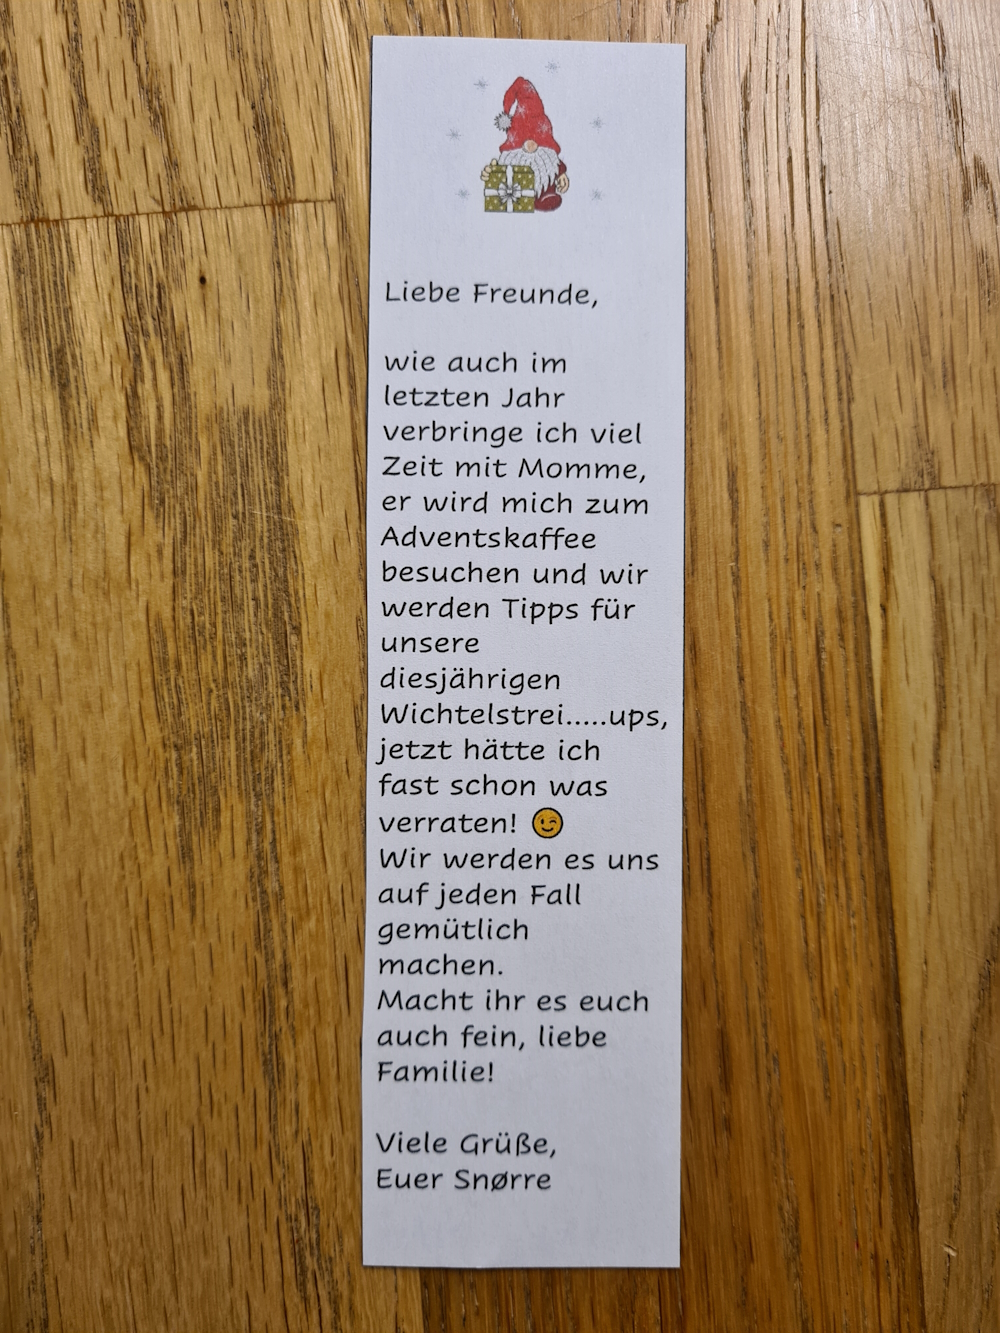 Liebe Freunde,
wie auch im
letzten Jahr
verbringe ich viel
Zeit mit Momme,
er wird mich zum
Adventskaffee
besuchen und wir
werden Tipps für
unsere
diesjährigen
Wichtelstrei.....ups,
jetzt hätte ich
fast schon was
verraten! 😉
Wir werden es uns
auf jeden Fall
gemütlich
machen.
Macht ihr es euch
auch fein, liebe
Familie!
Viele Grüße,
Euer Snørre